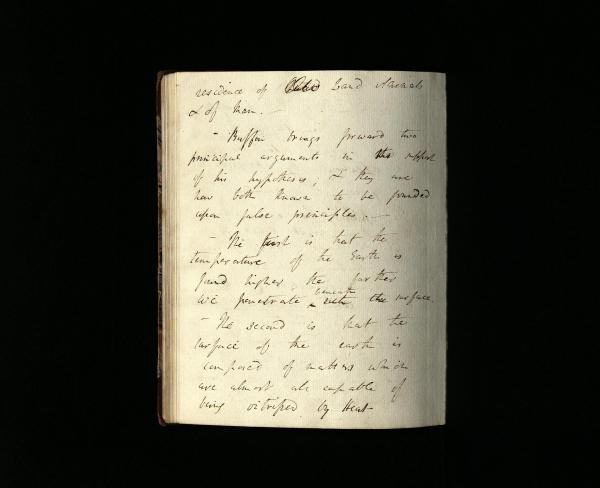 residence of Land Animals
& of Man. —
— Buffon brings forward two
principal arguments in the support
of his hypothesis; & they are
now both known to be founded
upon false principles. —
— The first is that the
temperature of the Earth is
found higher, the farther
we penetrate beneath the surface.
— The second is that the
surface of the earth is
composed of matters which
are almost all capable of
being vitrified by Heat